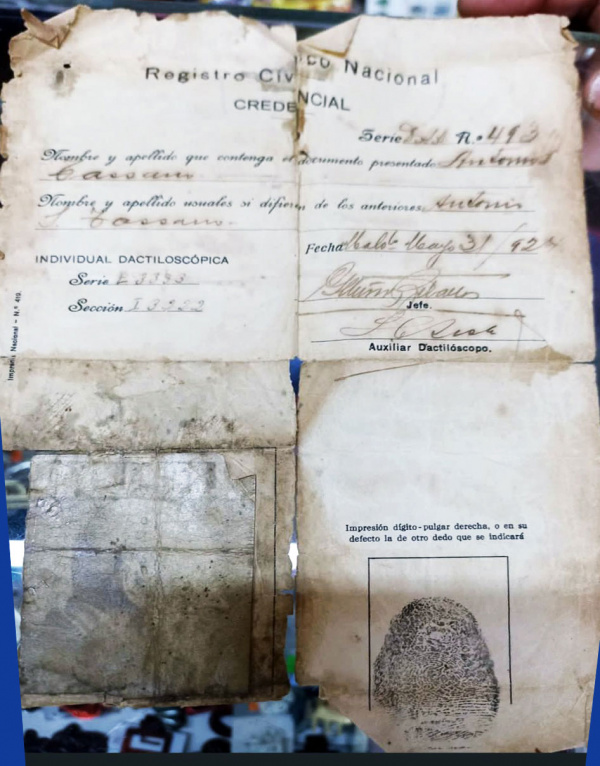 Registro Cívico Nacional
CREDENCIAL
Serie N.o 493
Nombre y apellido que contenga el documento presentado Antonio
Cassano
Nombre y apellido usuales si difieren de los anteriores Antonio
Cassano.
Fecha Mald. Mayo 31/92
INDIVIDUAL DACTILOSCÓPICA
Serie E 3333
Sección I 3222
Jefe.
Auxiliar Dactilóscopo.
Imprenta Nacional – N.° 419.
Impresión dígito-pulgar derecha, o en su
defecto la de otro dedo que se indicará